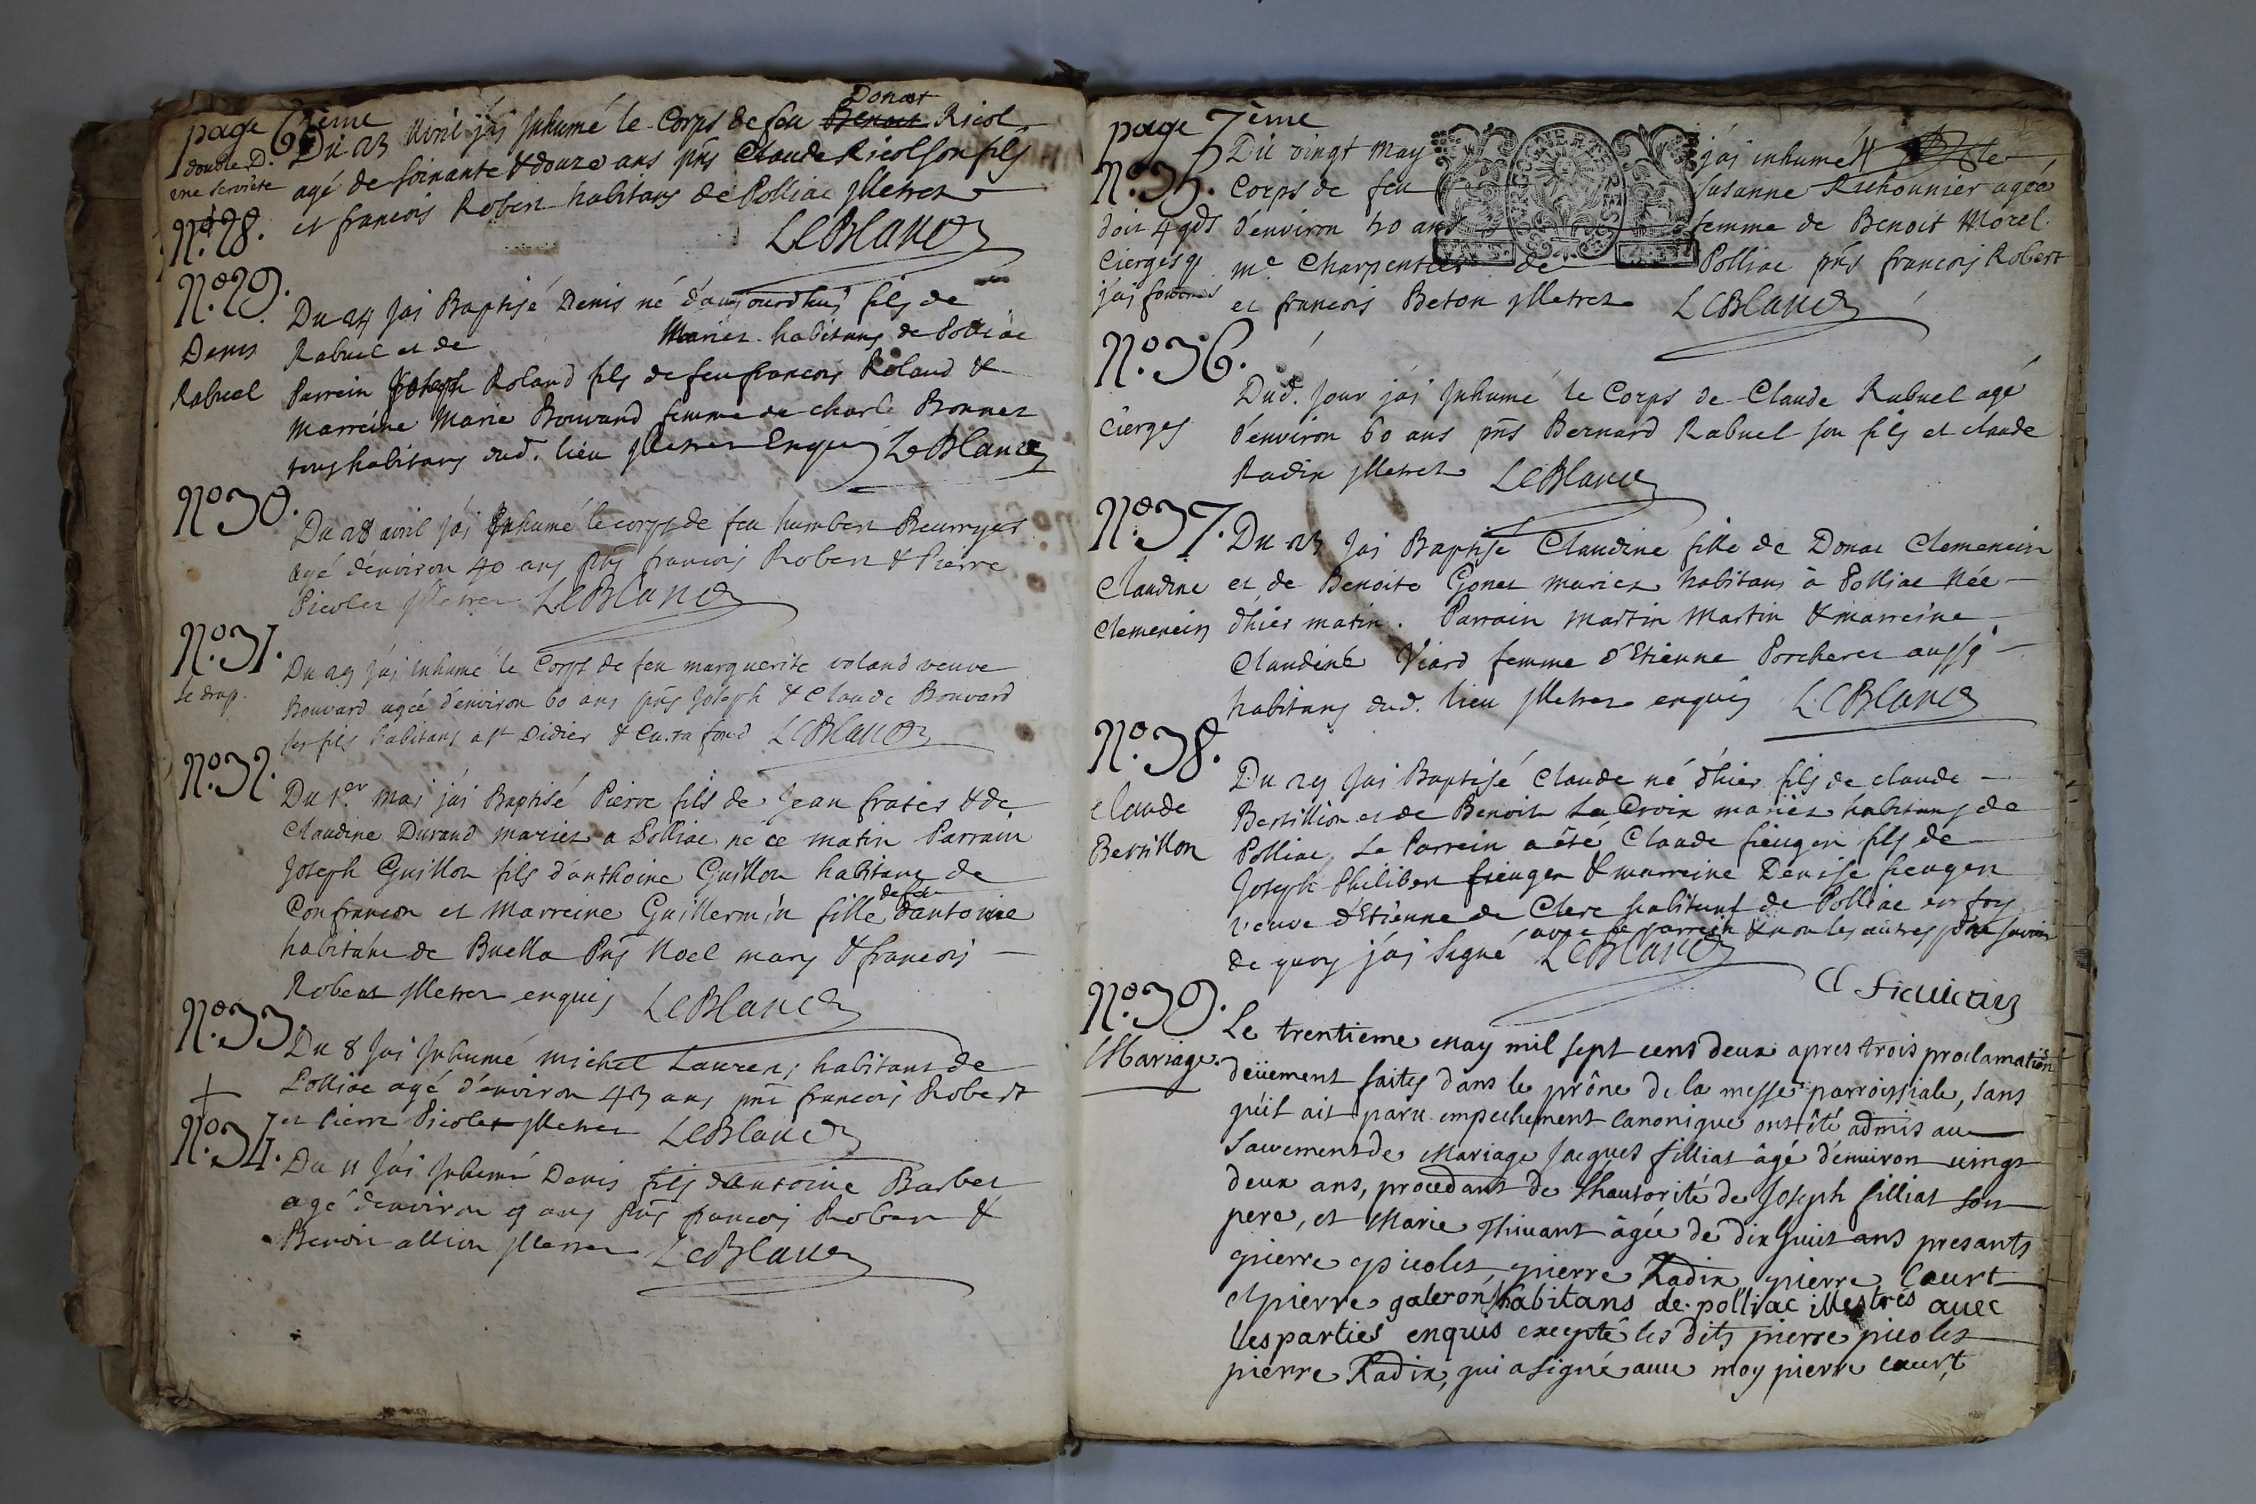 page 6ème
double D.
une serviete
N° 28.
Du 23 avril j'ai Inhumé le Corps de feu Benoit Donat Ricol
agé de soixante & douze ans pñs Claude Ricol son fils
et francois Robert habitans de Polliac jlletrez
LeBlanc
N° 29.
Denis
Rabuel
Du 24 Jai Baptisé Denis né d'aujourdhuj fils de
Rabuel et de Mariez habitans de Polliac
Parrein Joseph Roland fils de feu francois Roland &
Marreine Marie Bouvard femme de charle Bonnet
tous habitans dud. lieu jlletrez Enquis LeBlanc
N° 30.
Du 28 avril j'ai Inhumé le corps de feu humbert
agé d'environ 40 ans pñs francois Robert & Pierre
Picolet jlletrez LeBlanc
N° 31.
le drap.
Du 29 j'ai inhumé le Corps de feu marguerite voland veuve
Bouvard agée d'environ 60 ans pñs Joseph & Claude Bouvard
ses fils habitans a st Didier & Curtafond LeBlanc
N° 32.
Du 1er mai j'ai Baptisé Pierre fils de Jean fratés & de
Claudine Durand mariez a Polliac né ce matin Parrain
Joseph Guillon fils d'anthoine Guillon habitant de
Confrancon et Marreine Guillermin fille de feu d'antoine
habitant de Buella Pñs Noel mary & francois
Robert jlletrez enquis LeBlanc
N° 33
Du 8 Jai Inhumé michel Laurent habitant de
Polliac agé d'environ 43 ans pñs francois Robert
et Pierre Picolet jlletrez LeBlanc
N° 34.
Du 11 J'ai Inhumé Denis fils d'antoine Barbet
agé d'environ 9 ans pñs francois Robert &
Benoit allion jlletrez LeBlanc
page 7ème
N° 35.
doit 4 gds
Cierges q
j'ai fournis
Du vingt may j'ai inhumé le
Corps de feu Susanne Richonnier agée
d'environ 50 ans femme de Benoit Morel
me Charpentier de Polliac pñs francois Robert
et francois Beton jlletrez LeBlanc
N° 36.
cierges
Dud. Jour j'ai Inhumé le Corps de Claude Rabuel agé
d'environ 60 ans pñs Bernard Rabuel son fils et claude
Radix jlletrez LeBlanc
N° 37.
Claudine
Clemencin
Du 23 Jai Baptisé Claudine fille de Donat Clemencin
et de Benoite Gonet mariez habitans à Polliac Née
d'hier matin. Parrain Martin Martin & marreine
Claudine Viard femme d'Etienne Porcheret aussy
habitans dud. lieu jlletrez enquis LeBlanc
N° 38.
claude
Bertillon
Du 29 Jai Baptisé Claude né d'hier fils de claude
Bertillion et de Benoit LaCroix mariez habitans de
Polliac, Le Parrein a êté Claude fieugen fils de
Joseph Philibert fieugen & marreine Denise fieugen
veuve d'Etienne de Clerc habitans de Polliac en foy
de quoy j'ai signé avec le parrein & non les autres pr ne savoir
LeBlanc
N° 39.
Mariage.
Le trentieme may mil sept cens deux apres trois proclamation
deüement faites dans le prône de la messe parroissiale, sans
qu'il ait paru empechement canonique ont êté admis au
Sacrement de Mariage Jacques filliat âgé d'énuiron uingt
deux ans, procedant de l'hautorité de Joseph filliat son
pere, et Marie Thiuant âgée de dix huit ans presants
pierre picolet, pierre Radix, pierre Caurt
et pierre galeron habitans de polliac illestres auec
les parties enquis excepté les dits pierre picolet
pierre Radix, qui a signé auec moy pierre caurt,